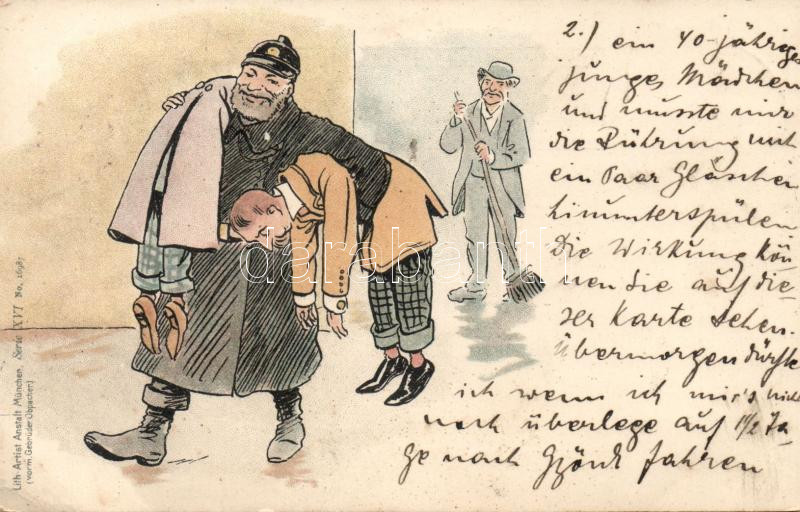 2.) ein 40-jähriges
junges Mädchen
und musste mir
die Rührung mit
ein Paar Gläschen
hinunterspülen
Die Wirkung kön
nen Sie auf die
ser Karte sehen.
Übermorgen dürfte
ich wenn ich mir's nicht
noch überlege auf 1 1/2 Ta
ge nach Gyönk fahren
Lith. Artist Anstalt München, Serie XVI No. 16987
(vorm. Gebrüder Obpacher)
darabanth